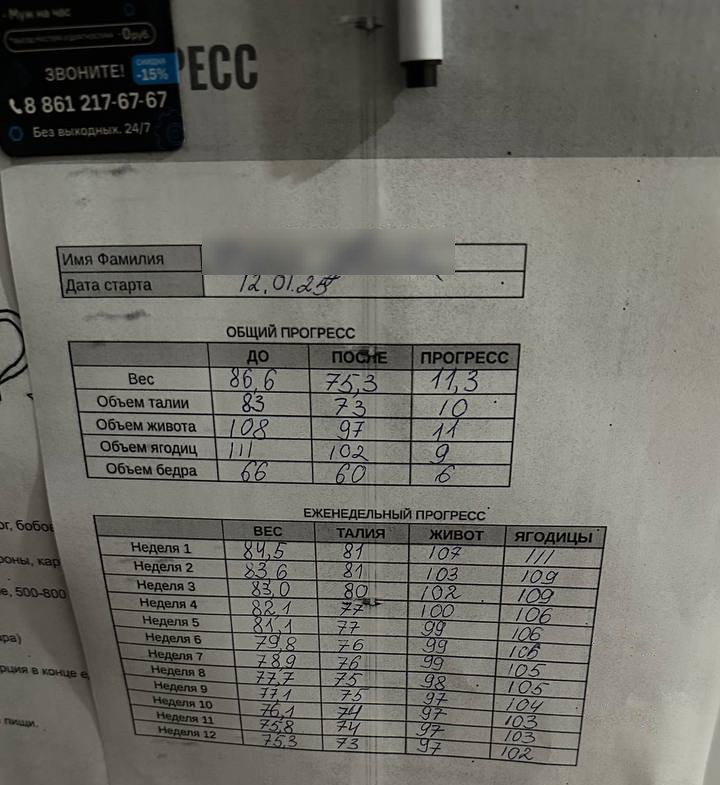 - Муж на час
-0руб.
ЗВОНИТЕ! СКИДКА -15%
8 861 217-67-67
Без выходных. 24/7
РЕСС
Имя Фамилия
Дата старта 12.01.25
ОБЩИЙ ПРОГРЕСС
ДО ПОСЛЕ ПРОГРЕСС
Вес 86,6 75,3 11,3
Объем талии 83 73 10
Объем живота 108 97 11
Объем ягодиц 111 102 9
Объем бедра 66 60 6
ЕЖЕНЕДЕЛЬНЫЙ ПРОГРЕСС
ВЕС ТАЛИЯ ЖИВОТ ЯГОДИЦЫ
Неделя 1 84,5 81 107 111
Неделя 2 83,6 81 103 109
Неделя 3 83,0 80 102 109
Неделя 4 82,1 77 100 106
Неделя 5 81,1 77 99 106
Неделя 6 79,8 76 99 106
Неделя 7 78,9 76 99 105
Неделя 8 77,7 75 98 105
Неделя 9 77,1 75 97 104
Неделя 10 76,1 74 97 103
Неделя 11 75,8 74 97 103
Неделя 12 75,3 73 97 102
ог, бобов
роны, кар
е, 500-800
ара)
рция в конце е
пищи.